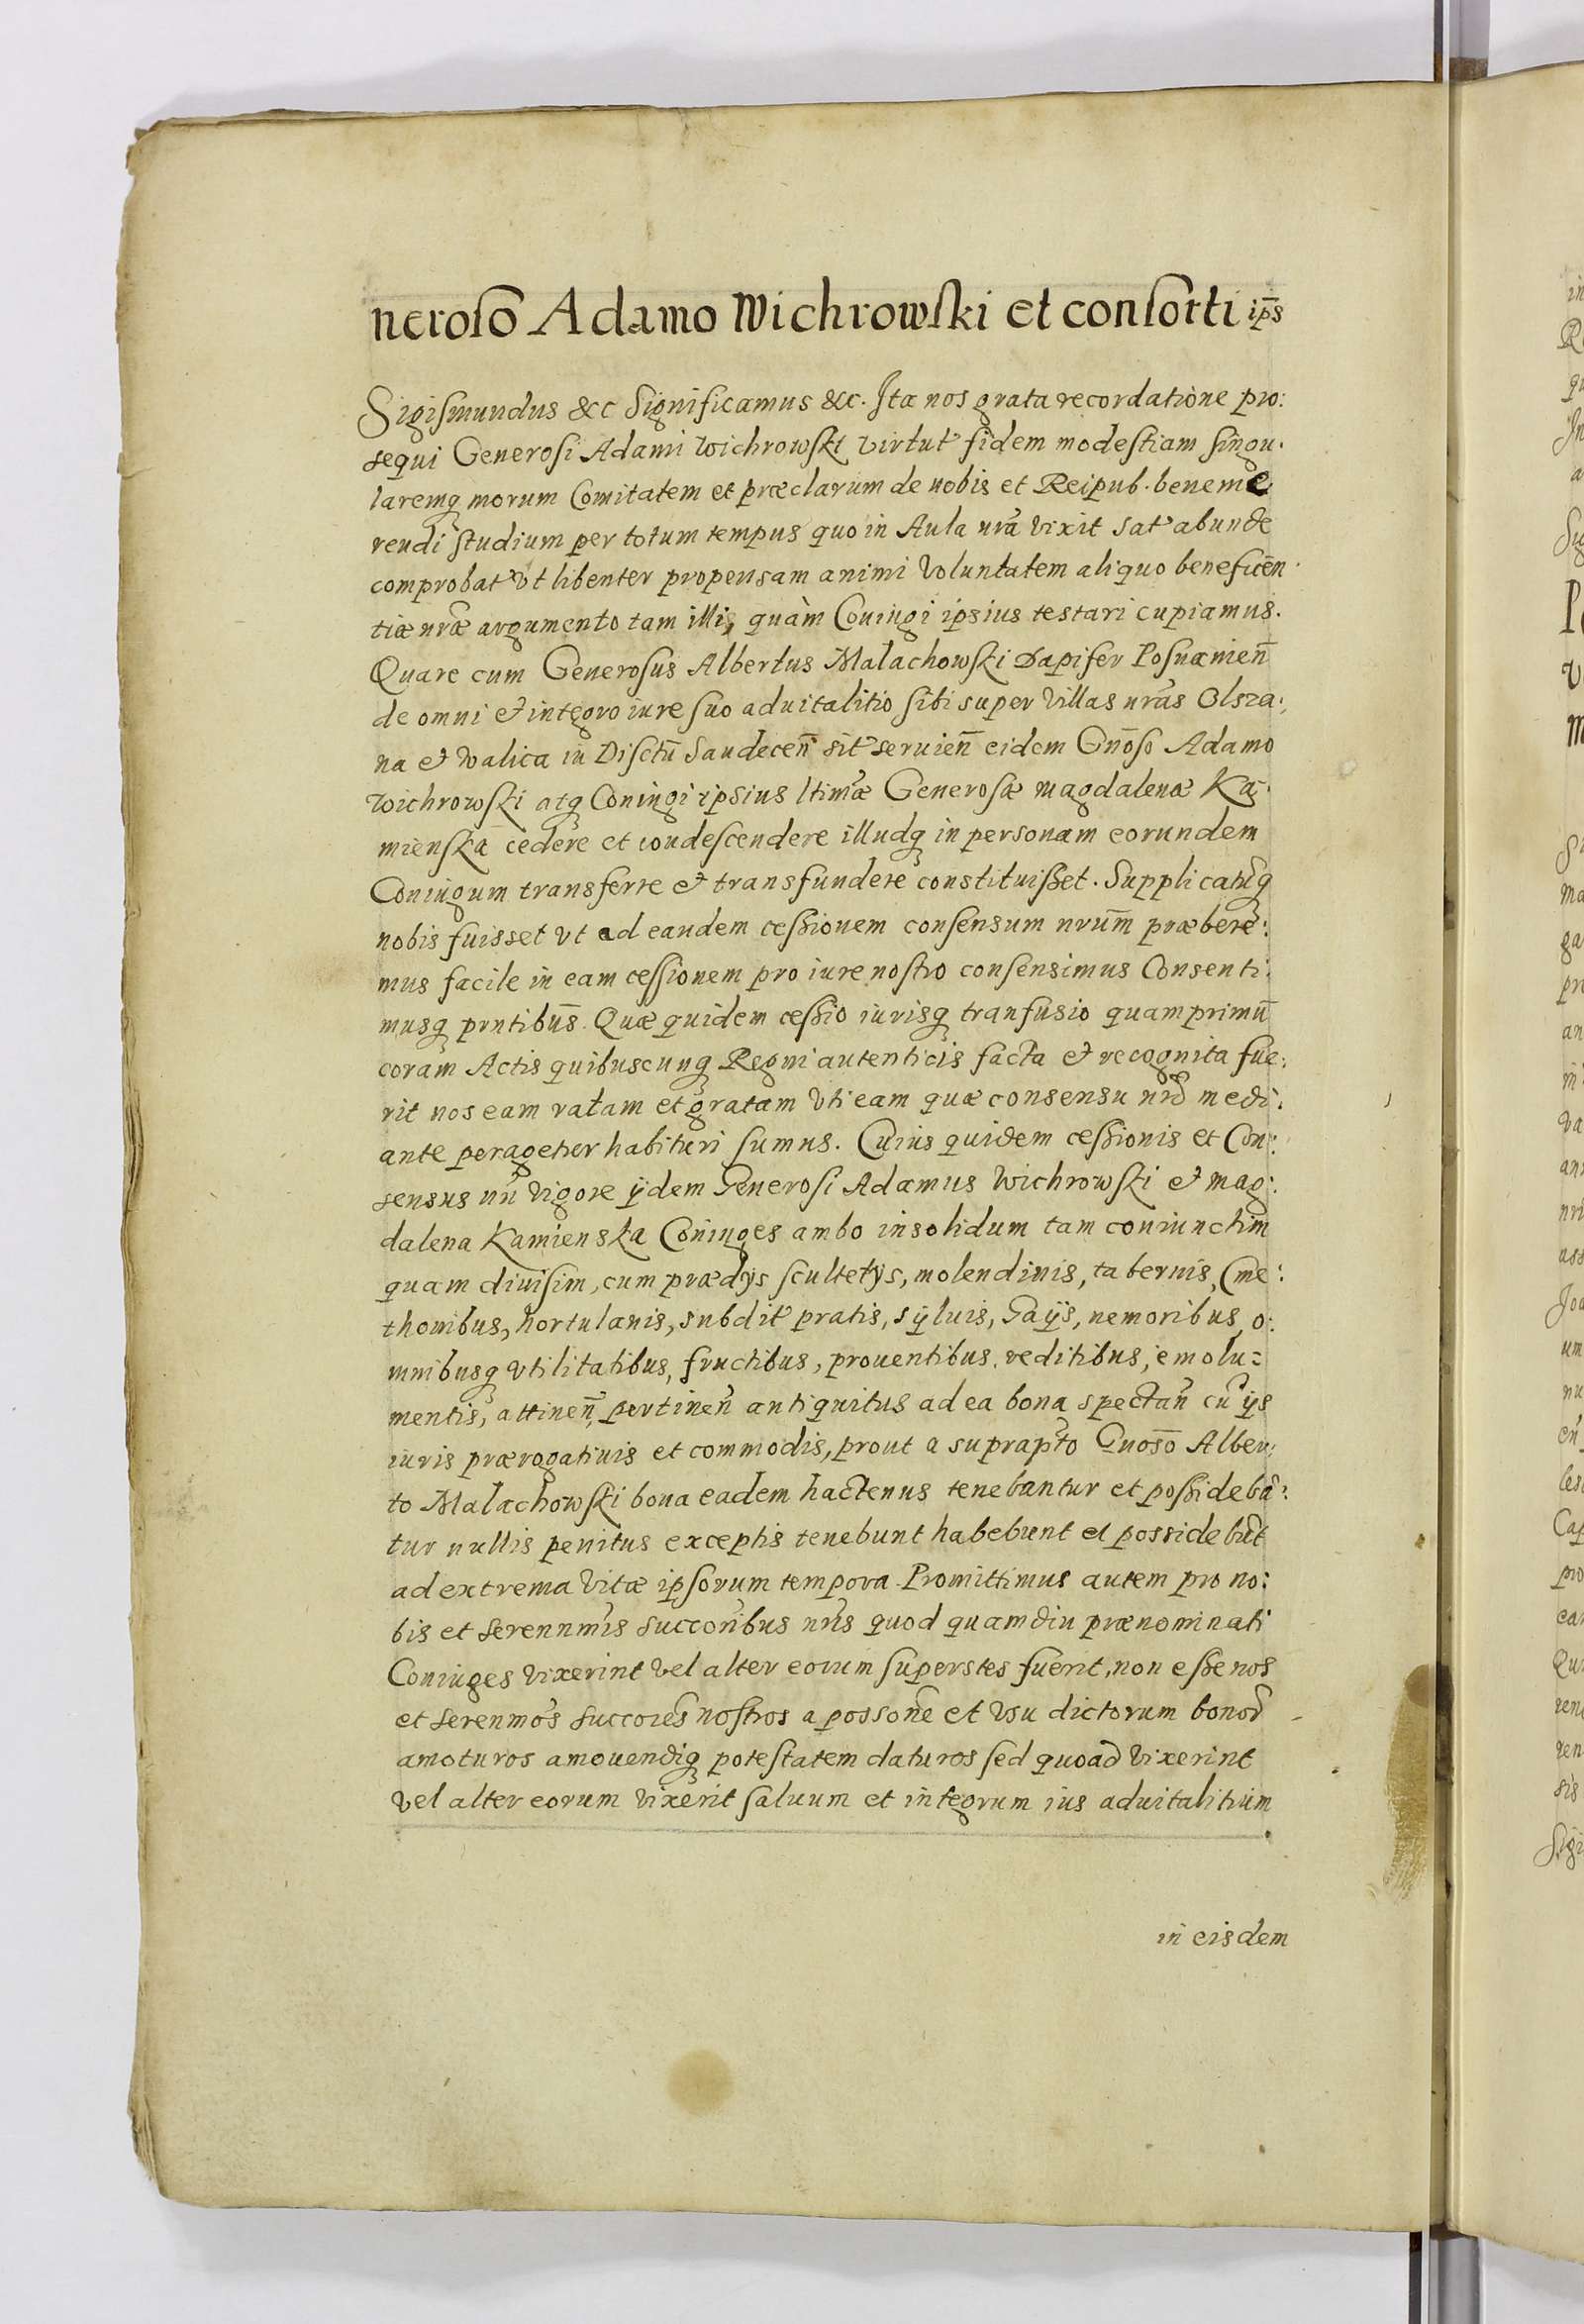 neroso Adamo Wichrowski et consorti ip̄s
Sigismundus &c Significamus &c. Ita nos grata recordatione pro:
sequi Generosi Adami Wichrowski virtut fidem modestiam singu.
laremq morum Comitatem et præclarum de nobis et Reipub. beneme
rendi studium per totum tempus quo in Aula nrā vixit sat abunde
comprobat vt libenter propensam animi voluntatem aliquo beneficēn
tiæ nrāe argumento tam illi, quàm Coniugi ipsius testari cupiamus.
Quare cum Generosus Albertus Malachowski Dapifer Posnanieñ
de omni et integro iure suo aduitalitio sibi super villas nrās Olsza:
na et Walica in Disctū Sandeceñ sit seruieñ eidem Gnōso Adamo
Wichrowski atq Coniugi ipsius ltimæ Generosæ Magdalenæ Ka:
mienska cedere et condescendere illudq in personam eorundem
Coniugum transferre et transfundere constituisset. Supplicatūq
nobis fuisset vt ad eandem cessionem consensum nrūm præbere:
mus facile in eam cessionem pro iure nostro consensimus Consenti:
musq pntibūs. Quæ quidem cessio iurisq tranfusio quamprimū
coram Actis quibuscunq Regni autenticis facta et recognita fue:
rit nos eam ratam et gratam vti eam quæ consensu nrō medi:
ante perageter habituri sumus. Cuius quidem cessionis et Con:
sensus nri vigore ijdem Generosi Adamus Wichrowski et Mag:
dalena Kamienska Coniuges ambo insolidum tam coniunctim
quam diuisim, cum prædijs scultetijs, molendinis, tabernis, Cme:
thonibus, hortulanis, subdit pratis, syluis, Gaijs, nemoribus, o:
mnibusq vtilitatibus, fructibus, prouentibus, reditibus, emolu=
mentis, attineñ, pertineñ antiquitus ad ea bona spectañ cū ijs
iuris prærogatiuis et commodis, prout a suprapto Gnosō Alber:
to Malachowski bona eadem hactenus tenebantur et possidebā:
tur nullis penitus exceptis tenebunt habebunt et possidebūt
ad extrema vitæ ipsorum tempora. Promittimus autem pro no:
bis et Serennmis Succoribus nris quod quamdiu prænominati
Coniuges vixerint vel alter eorum superstes fuerit, non esse nos
et Serenmos Succores nostros a possone et vsu dictorum bonor
amoturos amouendiq potestatem daturos sed quoad vixerint
vel alter eorum vixerit saluum et integrum ius aduitalitium
in eisdem